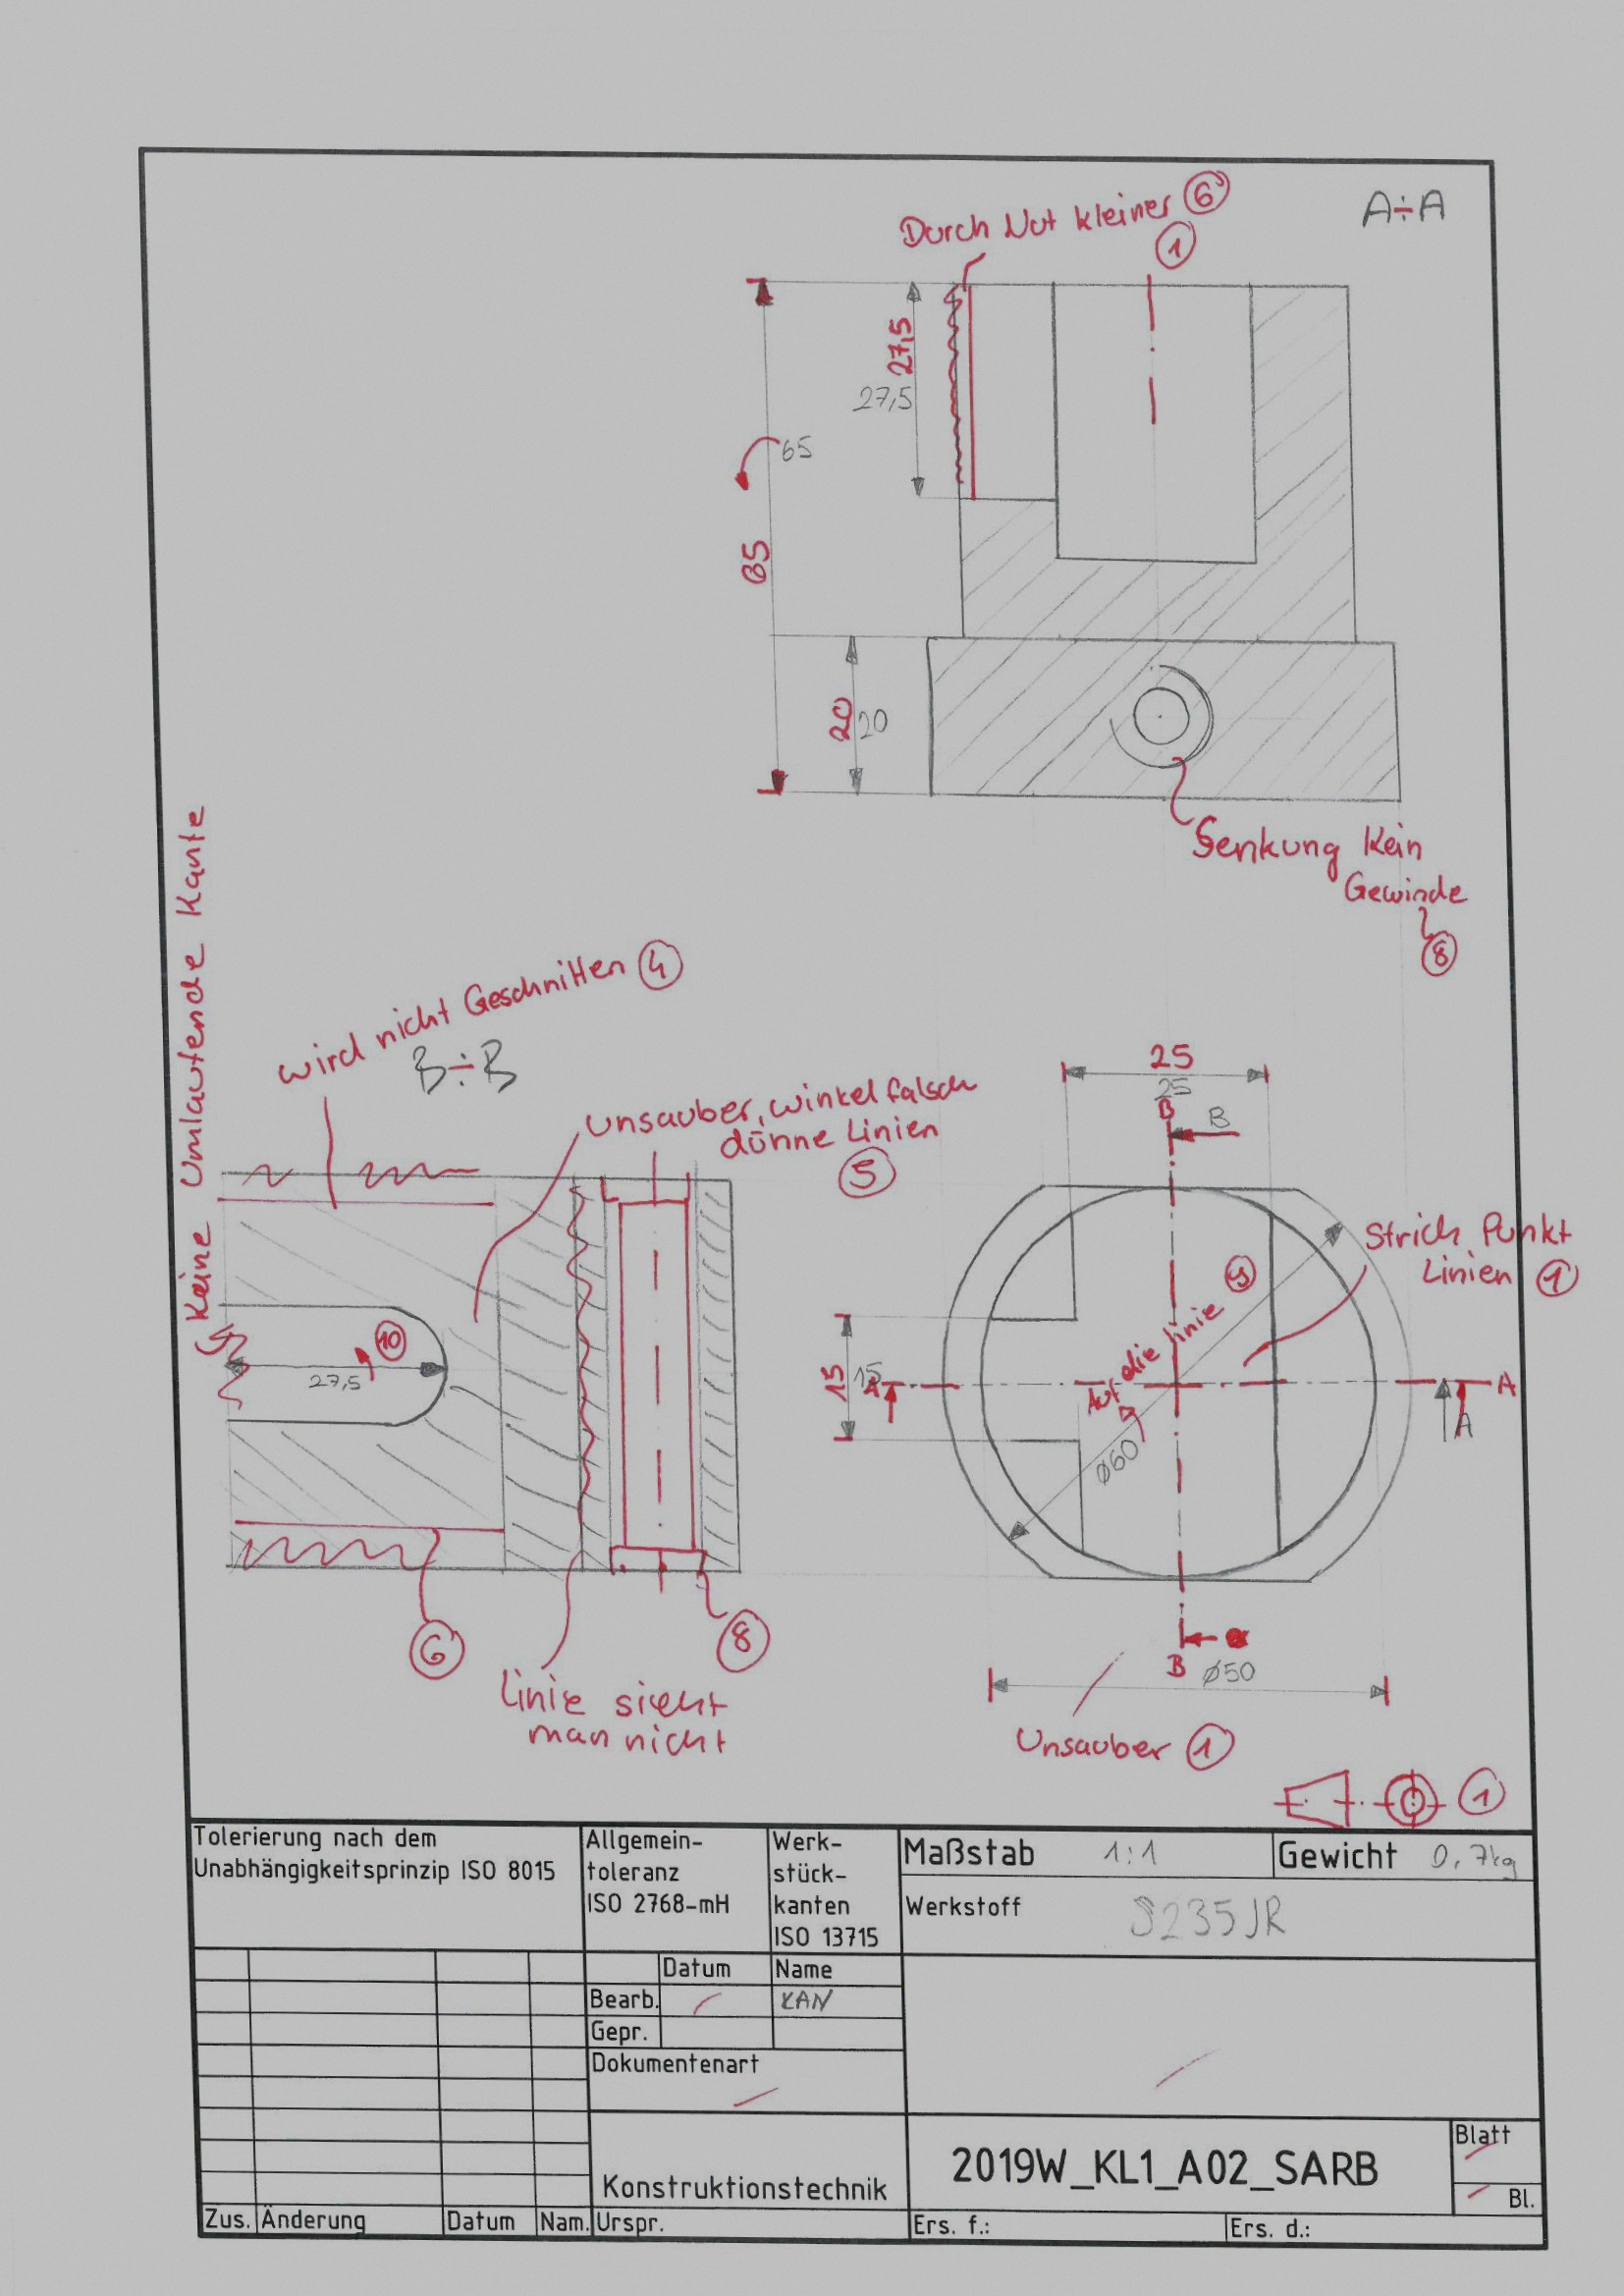 Durch Nut kleiner 6
1
A÷A
27,5
27,5
65
65
20
20
Senkung Kein
Gewinde
8
Keine Umlaufende Kante
wird nicht Geschnitten 4
B÷B
unsauber, winkel falsch
dünne Linien
5
10
27,5
6
8
Linie sieht
man nicht
25
25
B
B
Strich Punkt
Linien 1
Auf die linie 9
15
15
A
A
A
Ø60
B
Ø50
Unsauber 1
1
Tolerierung nach dem
Unabhängigkeitsprinzip ISO 8015
Allgemein-
toleranz
ISO 2768-mH
Werk-
stück-
kanten
ISO 13715
Maßstab 1:1
Gewicht 0,7kg
Werkstoff S235JR
Datum Name
Bearb. KAN
Gepr.
Dokumentenart
Konstruktionstechnik
2019W_KL1_A02_SARB
Blatt
Bl.
Zus. Änderung Datum Nam. Urspr. Ers. f.: Ers. d.: